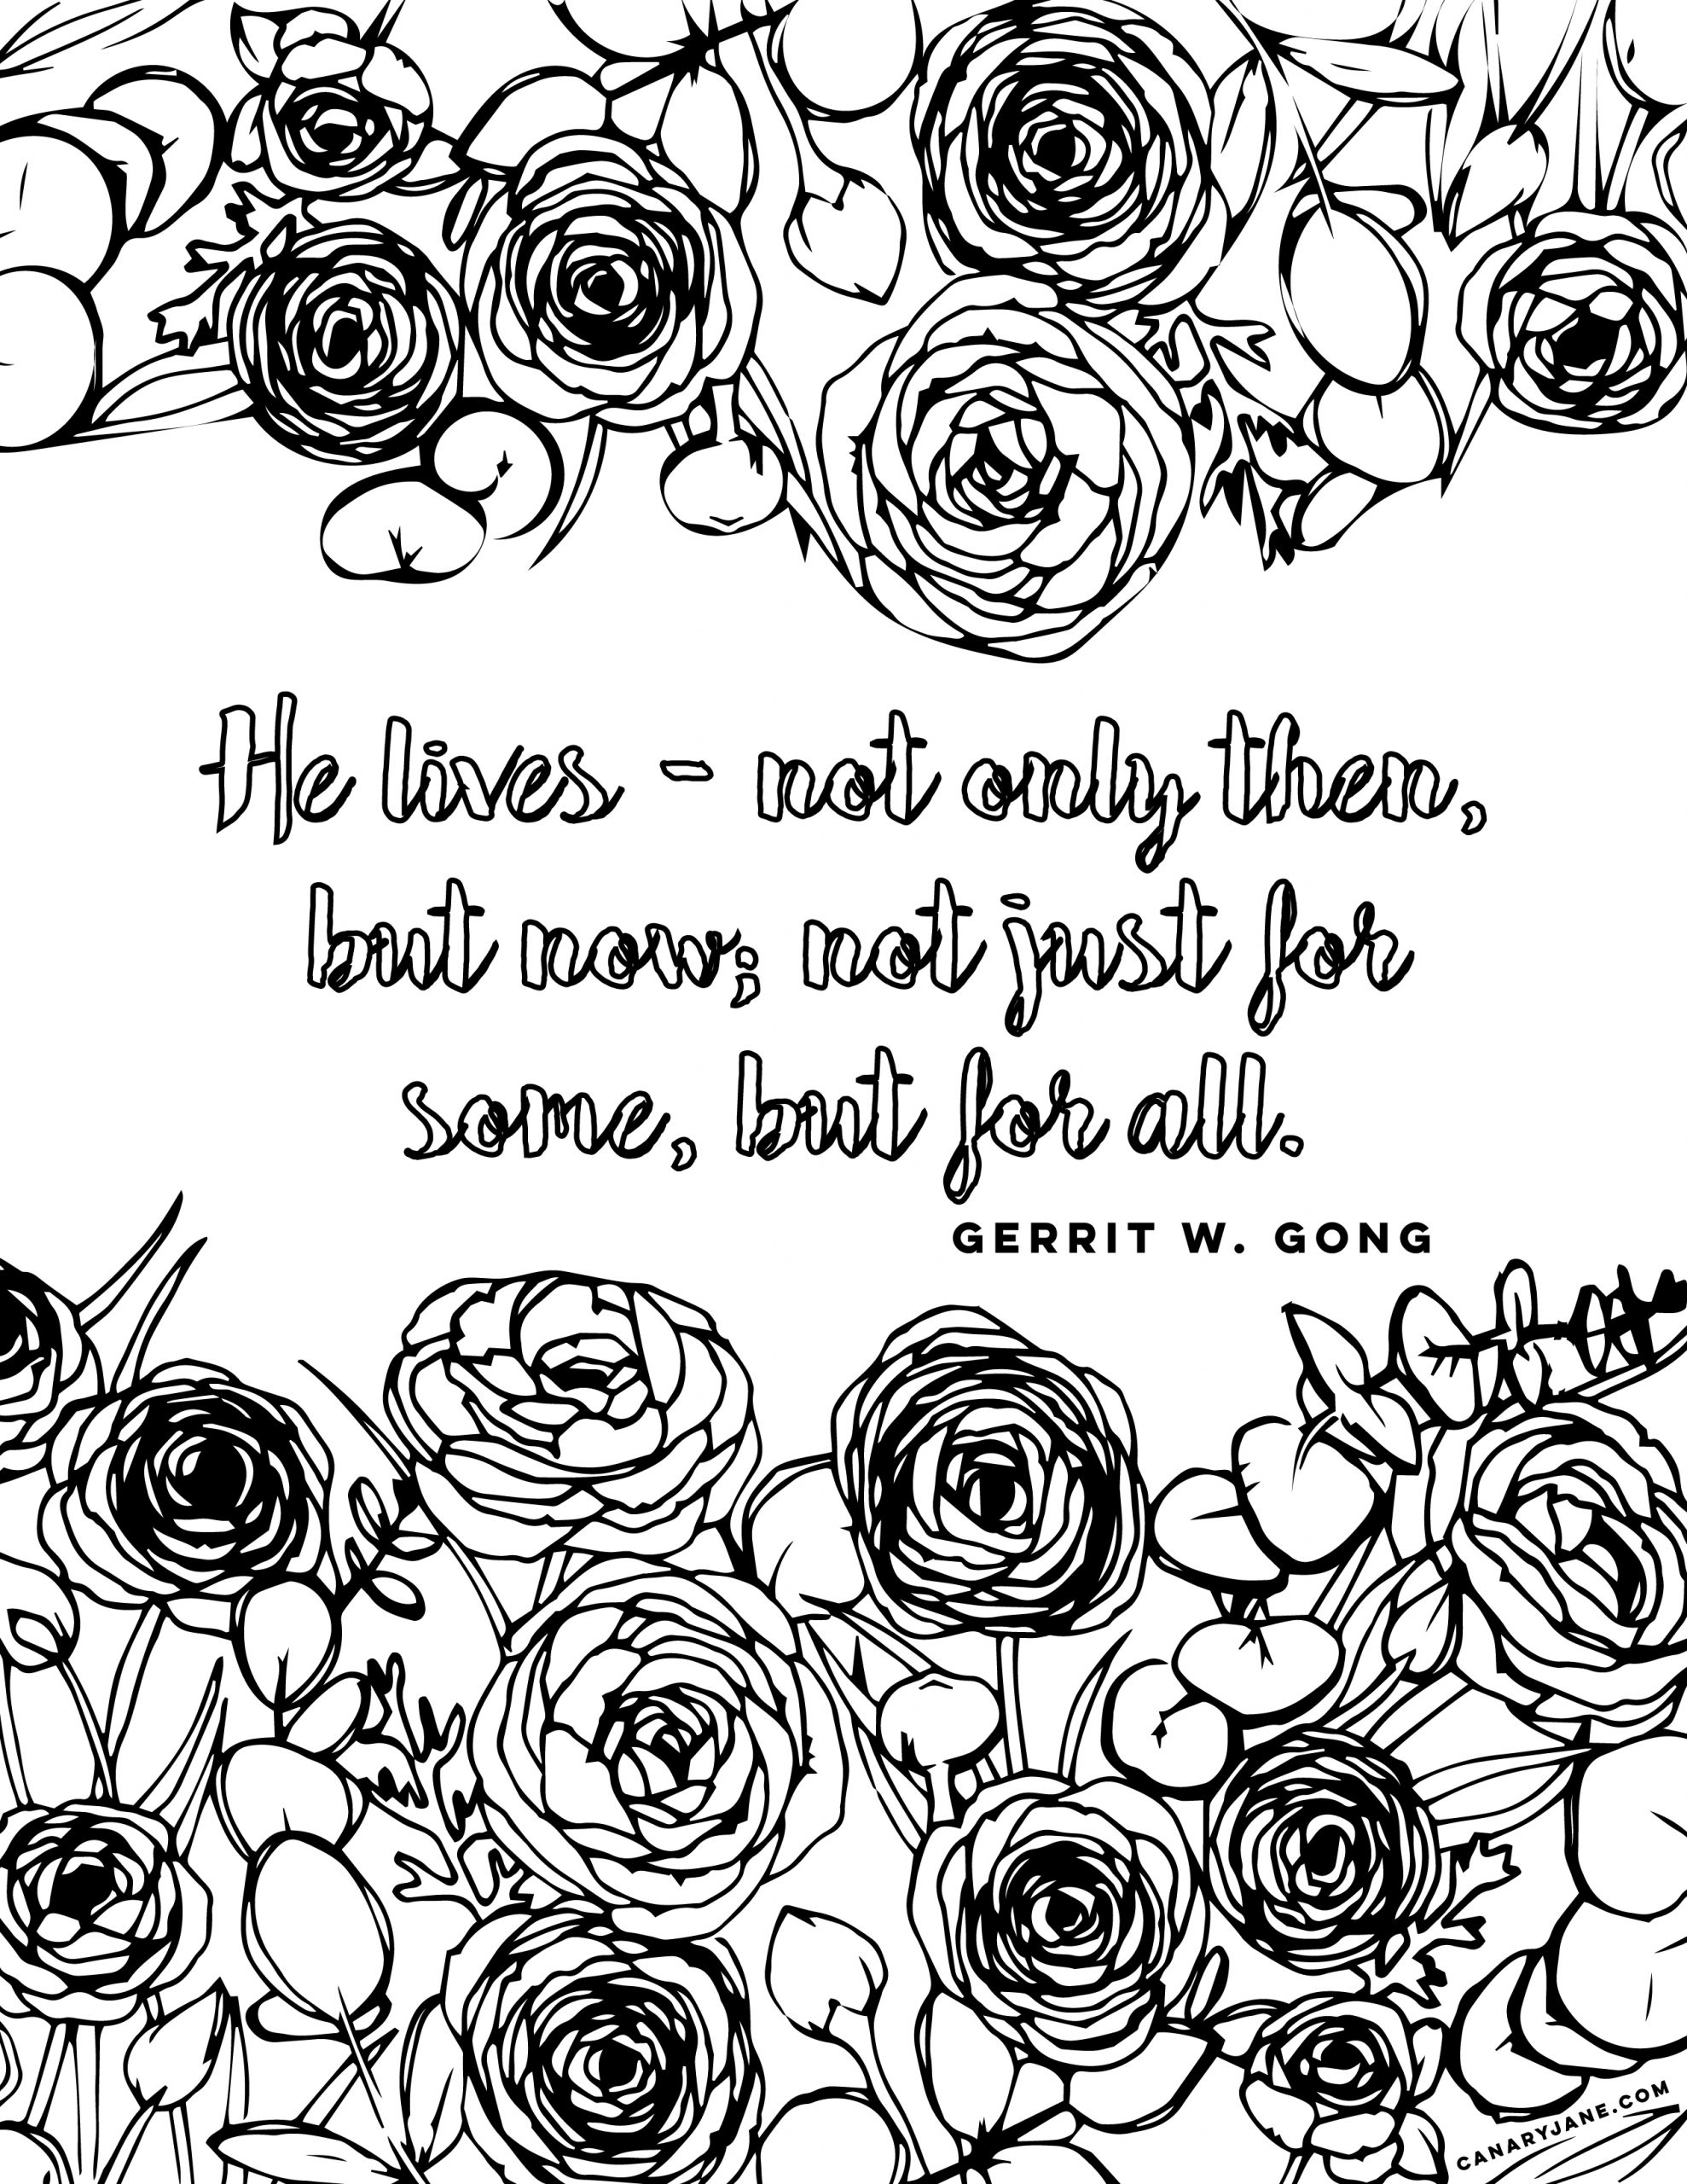 He lives - not only then,
but now; not just for
some, but for all.
GERRIT W. GONG
CANARYJANE.COM